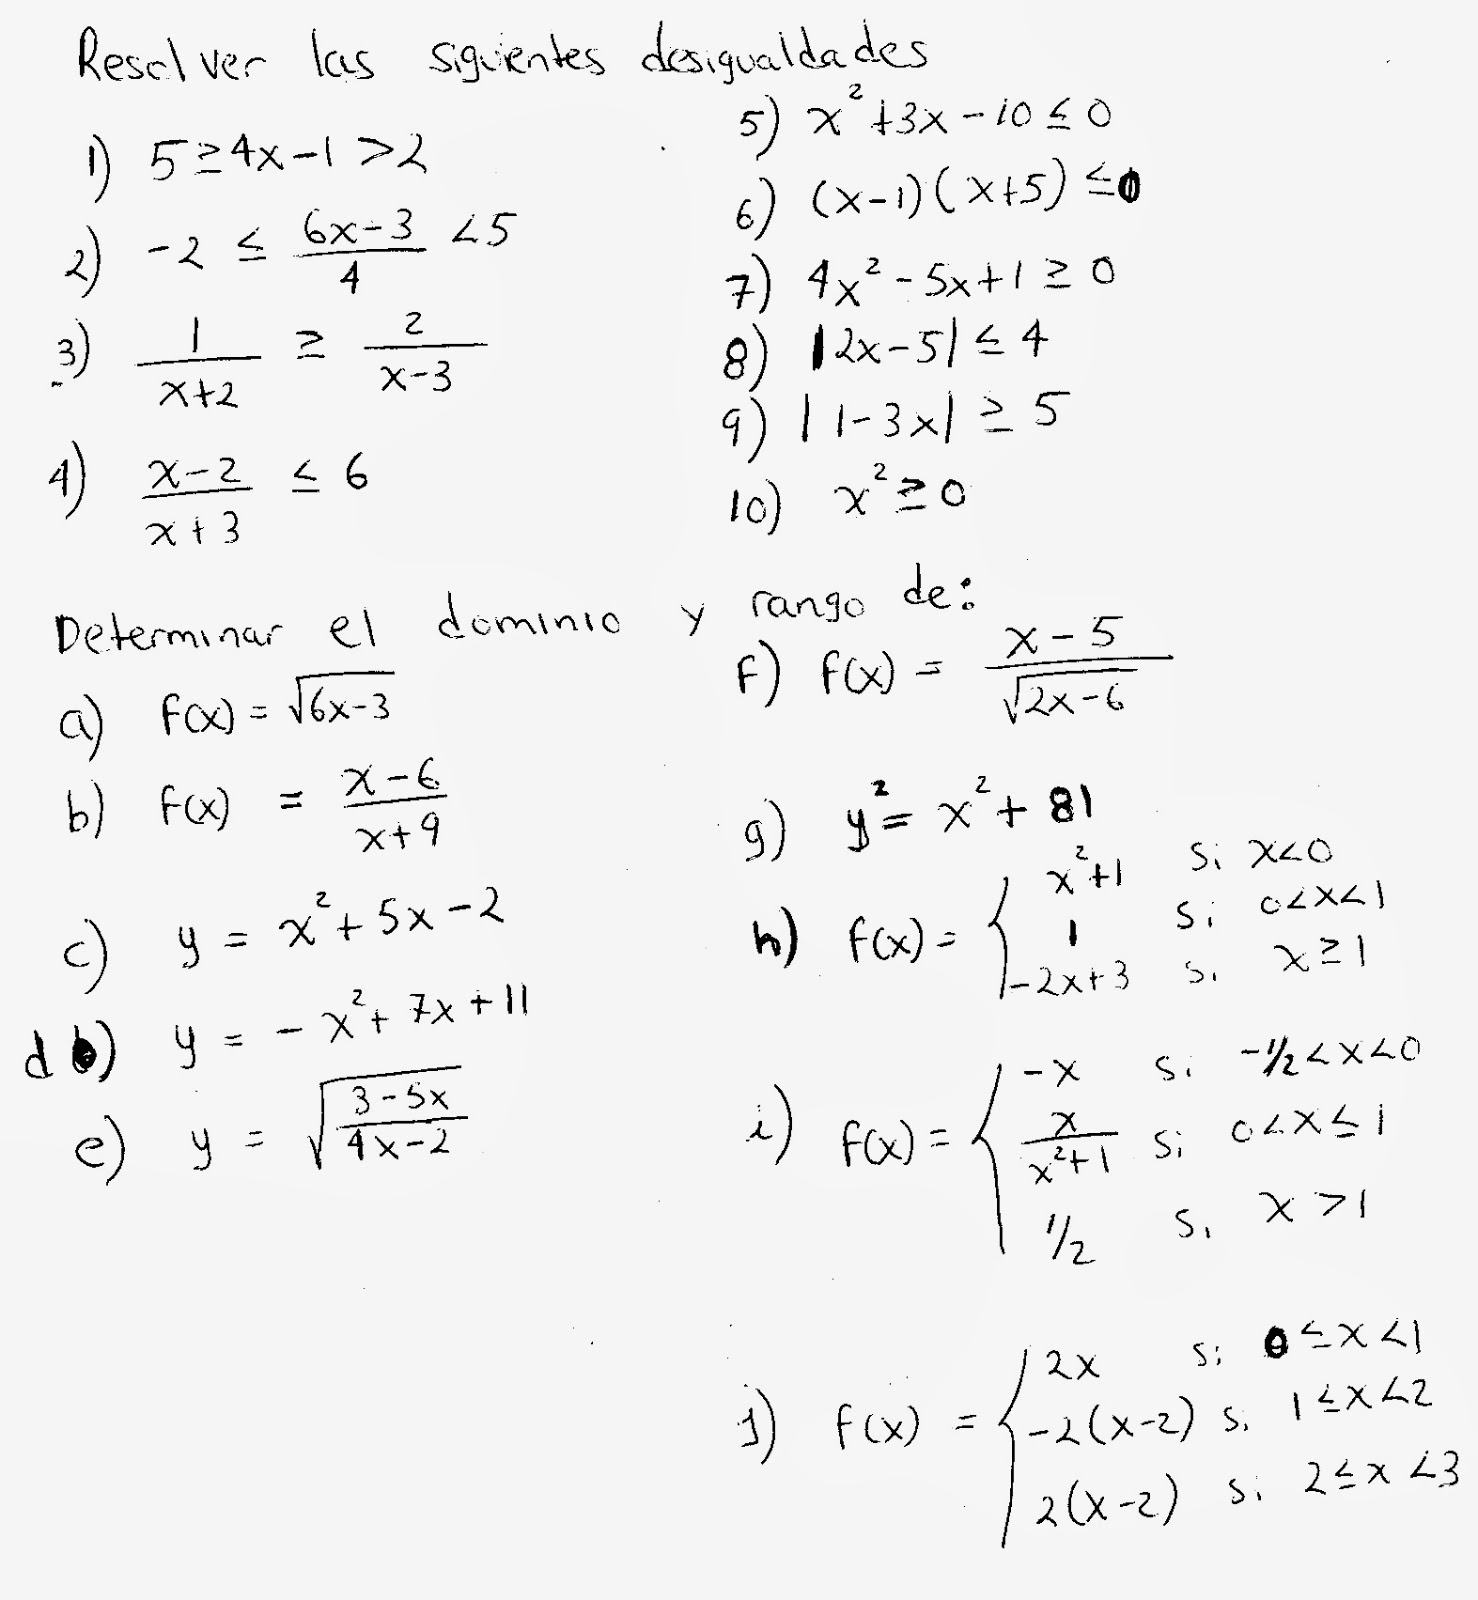 Resolver las siguientes desigualdades
1) 5 ≥ 4x-1 > 2
2) -2 ≤ (6x-3)/4 < 5
3) 1/(x+2) ≥ 2/(x-3)
4) (x-2)/(x+3) ≤ 6
5) x²+3x-10 ≤ 0
6) (x-1)(x+5) ≤ 0
7) 4x²-5x+1 ≥ 0
8) |2x-5| ≤ 4
9) |1-3x| ≥ 5
10) x² ≥ 0
Determinar el dominio y rango de:
a) f(x) = √(6x-3)
b) f(x) = (x-6)/(x+9)
c) y = x²+5x-2
d) y = -x²+7x+11
e) y = √((3-5x)/(4x-2))
F) f(x) = (x-5)/√(2x-6)
g) y² = x²+81
h) f(x) = { x²+1 si x<0
1 si 0<x<1
-2x+3 si x ≥ 1
i) f(x) = { -x si -1/2<x<0
x/(x²+1) si 0<x≤1
1/2 si x>1
j) f(x) = { 2x si 0≤x<1
-2(x-2) si 1≤x<2
2(x-2) si 2≤x<3